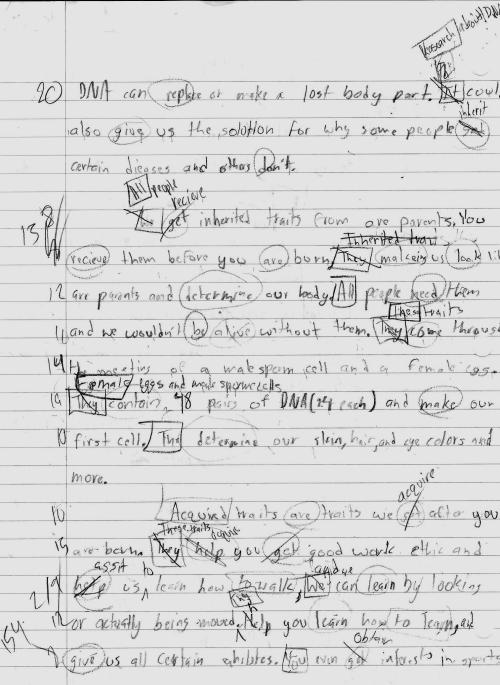 Research about DNA
20 DNA can replace or make a lost body part. It coul
inherit
also give us the solution for why some people get
certain dieases and others don't.
All people recieve
get inherited traits from are parents. You
Inherited trai
138
recieve them before you are born. They make us look li
12 are parents and determine our body. All people need them
These traits
and we wouldn't be alive without them. They come through
14 the meeting of a male sperm cell and a female egg.
Female eggs and male sperm cells
19 They contain 48 pairs of DNA (24 each) and make our
10 first cell. The determine our skin, hair, and eye colors and
more.
acquire
10 Acquired traits are traits we get after you
These traits
15 are born. They help you get good work ethic and
assit to
219 help us learn how to walk, We can learn by looking
12 or actually being moved. help you learn how to learn, and
obtain
154
give us all certain abilites. You even get interests in sports